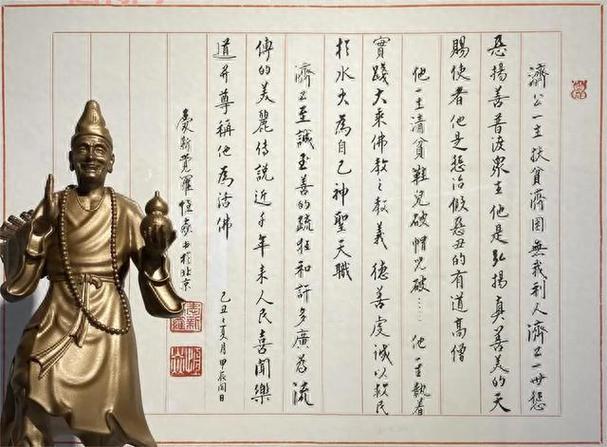 濟公一生扶貧濟困無我利人濟公一世懲
惡揚善普渡眾生他是弘揚真善美的天
賜使者他是懲治假惡丑的有道高僧
他一生清貧鞋兒破帽兒破……他一生執着
實踐大乘佛教之教義德善虔誠以救民
於水火為自己神聖天職
濟公至誠至善的疏狂和許多廣為流
傳的美麗傳說近千年來人民喜聞樂
道并尊稱他為活佛
己丑夏月甲辰閏日
愛新覺羅恒豪书於北京